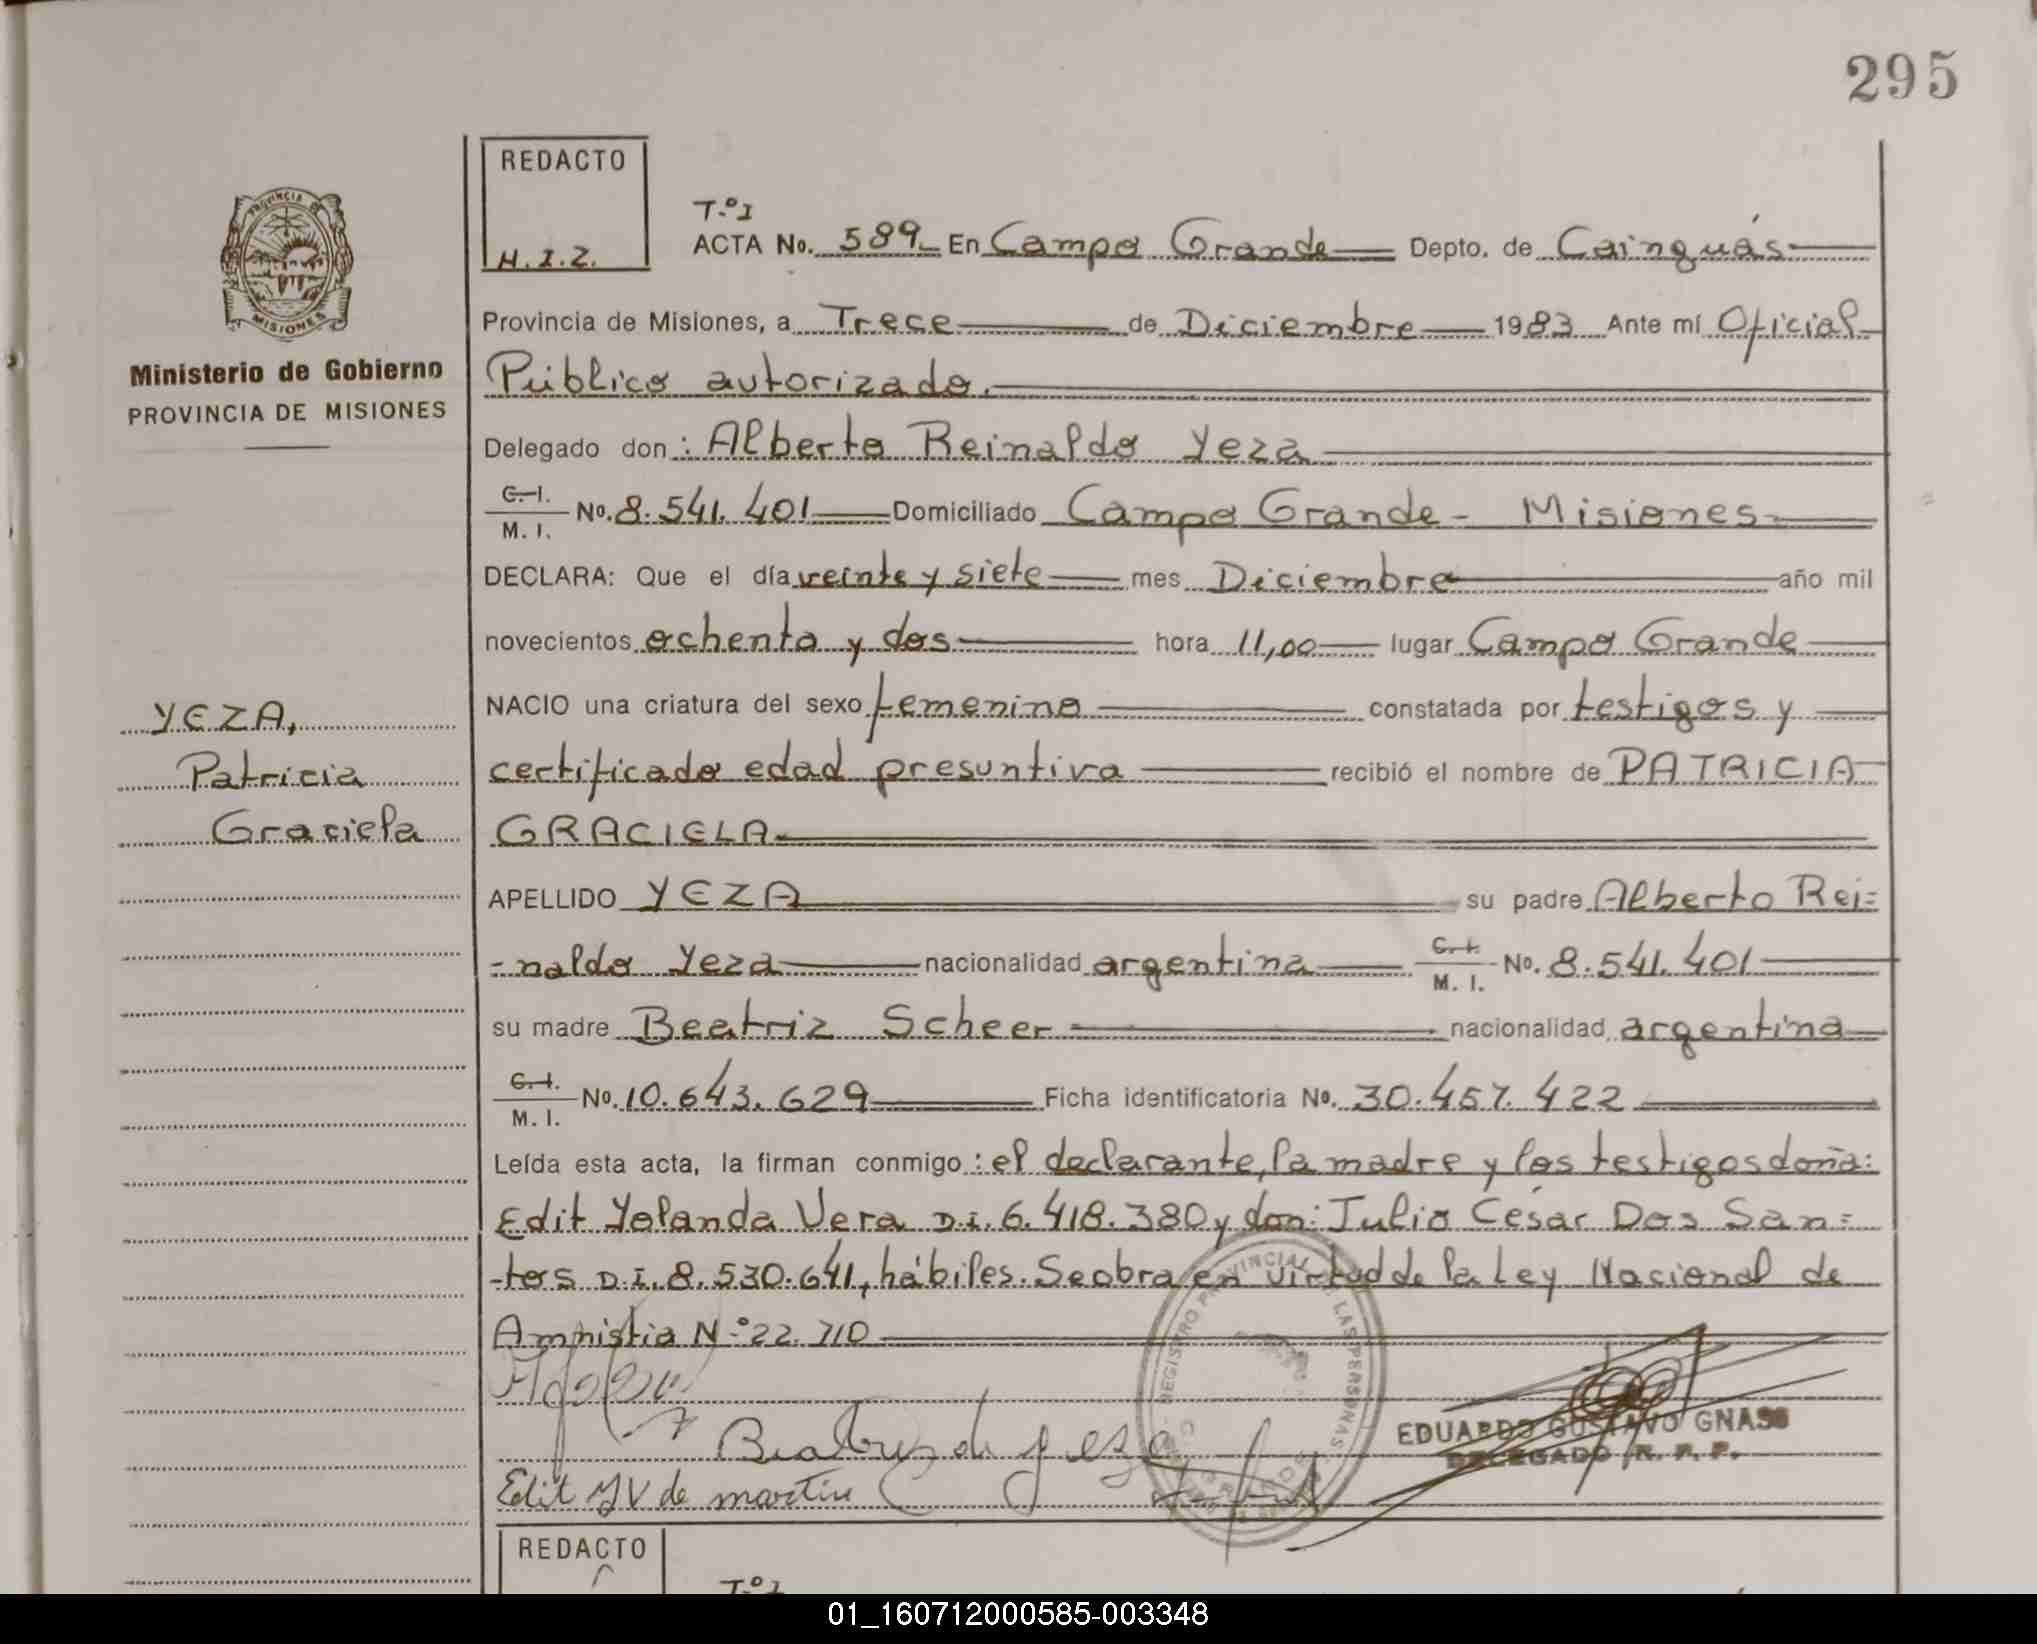 295
REDACTO
H.I.Z.
T.º I
ACTA No. 589 En Campo Grande Depto. de Cainguás
PROVINCIA DE
MISIONES
Ministerio de Gobierno
PROVINCIA DE MISIONES
Provincia de Misiones, a Trece de Diciembre 1983 Ante mí Oficial
Público autorizado.
Delegado don: Alberto Reinaldo Yeza
C.I. M.I. No. 8.541.401 Domiciliado Campo Grande - Misiones
DECLARA: Que el día veinte y siete mes Diciembre año mil
novecientos ochenta y dos hora 11,00 lugar Campo Grande
NACIO una criatura del sexo femenino constatada por testigos y
certificado edad presuntiva recibió el nombre de PATRICIA
GRACIELA
YEZA,
Patricia
Graciela
APELLIDO YEZA su padre Alberto Rei=
-naldo Yeza nacionalidad argentina C.I. M.I. No. 8.541.401
su madre Beatriz Scheer nacionalidad argentina
C.I. M.I. No. 10.643.629 Ficha identificatoria No. 30.457.422
Leída esta acta, la firman conmigo: el declarante, la madre y los testigos doña:
Edit Yolanda Vera D.I. 6.418.380 y don: Julio César Dos San=
-tos D.I. 8.530.641, hábiles. Se obra en virtud de la Ley Nacional de
Amnistia N.º 22.710
REGISTRO PROVINCIAL DE LAS PERSONAS
Beatriz de Yeza
EDUARDO GUSTAVO GNASS
DELEGADO R. P. P.
Edit Y V de martin
REDACTO
T.º I
01_160712000585-003348